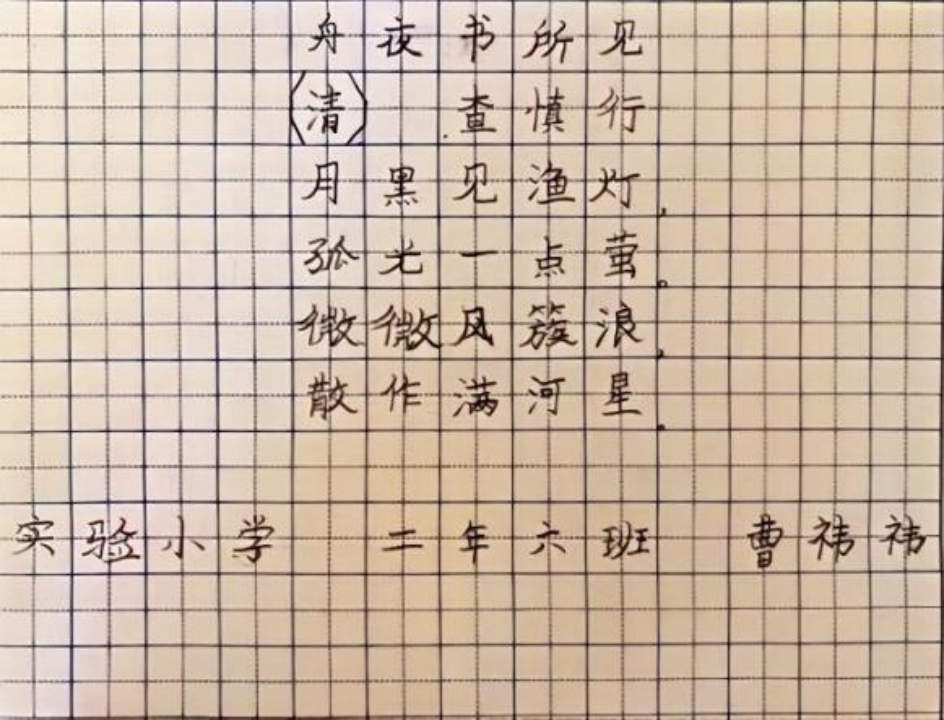 舟夜书所见
(清) 查慎行
月黑见渔灯,
孤光一点萤。
微微风簇浪,
散作满河星.
实验小学 二年六班 曹祎祎